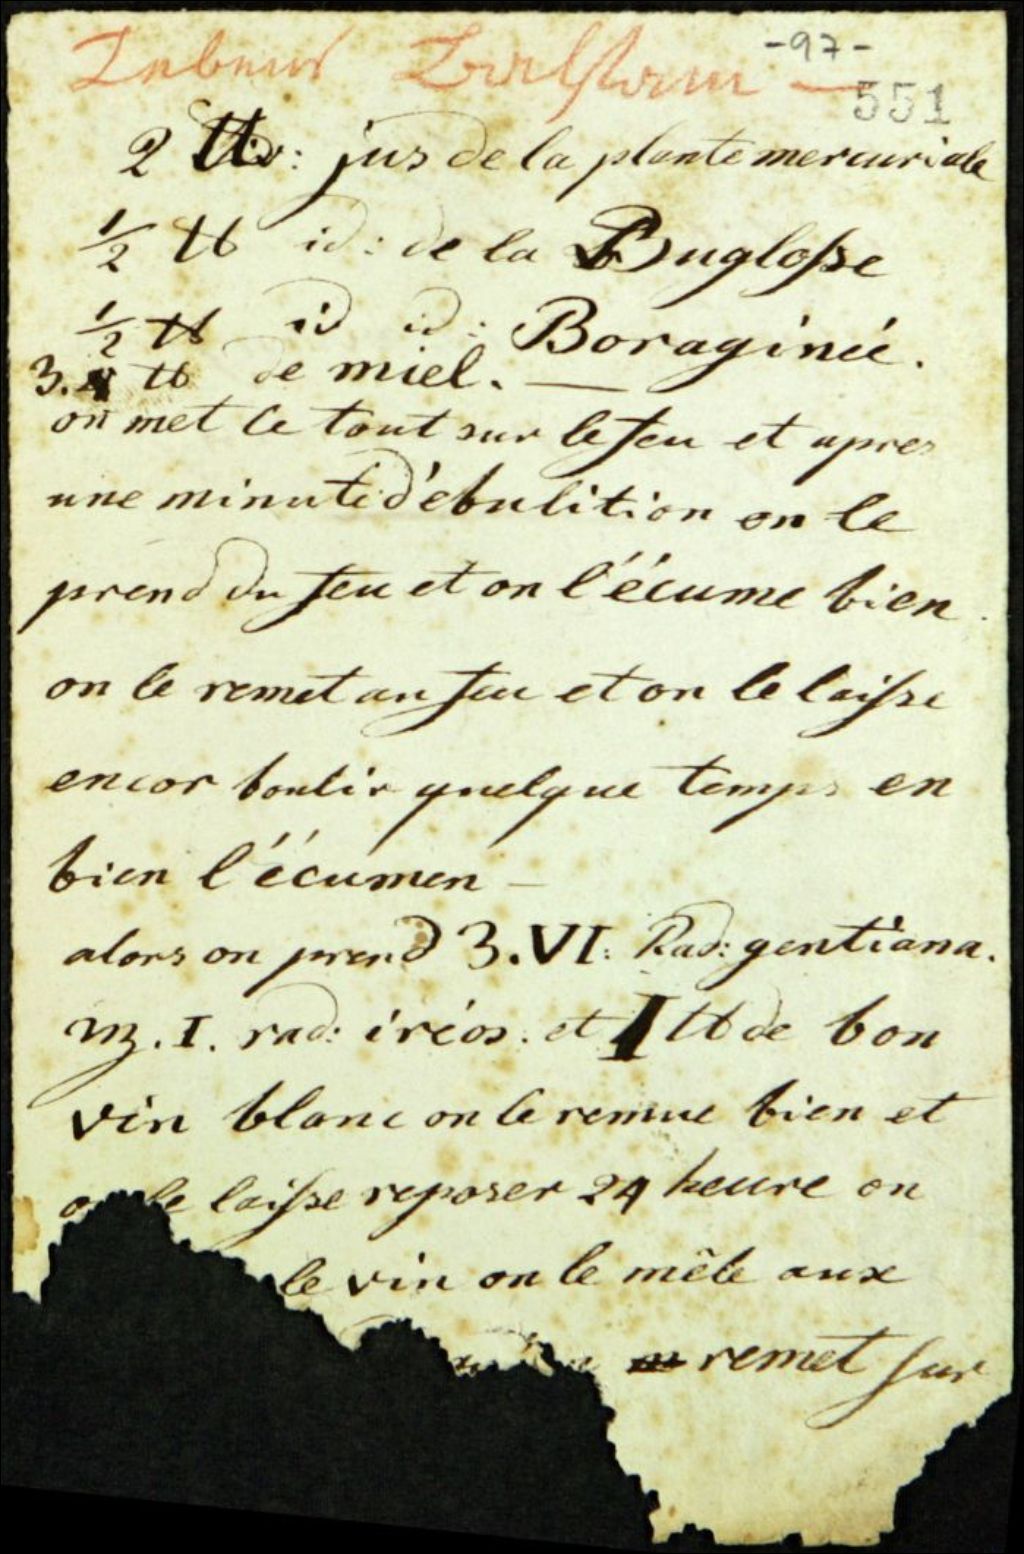 -97-
Lebens Balsam —
551
2 ℔: jus de la plante mercuriale
½ ℔ id: de la Bugloſse
½ ℔ id id: Boraginée.
3. ℔ de miel. —
on met le tout sur le feu et apres
une minute d'ebulition on le
prend du feu et on l'écume bien.
on le remet au feu et on le laiſse
encor boulir quelque temps en
bien l'écumen —
alors on prend 3.VI: Rad: gentiana.
I. rad: iréos. et 1 ℔ de bon
vin blanc on le remue bien et
on le laiſse reposer 24 heure on
le vin on le mêle aux
remet sur